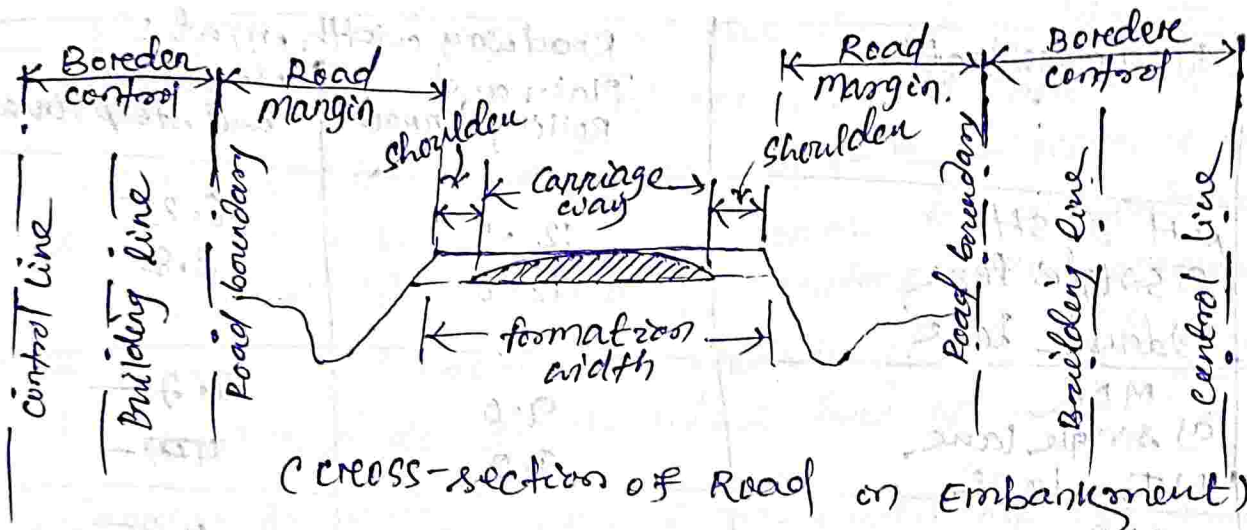 Boreden control
Road mangin
Road margin.
Boredere control
shoulden
shoulden
carriage way
control line
Building line
Road boundary
formation width
Road boundary
Building line
Control line
(Cross-section of Road on Embankment)